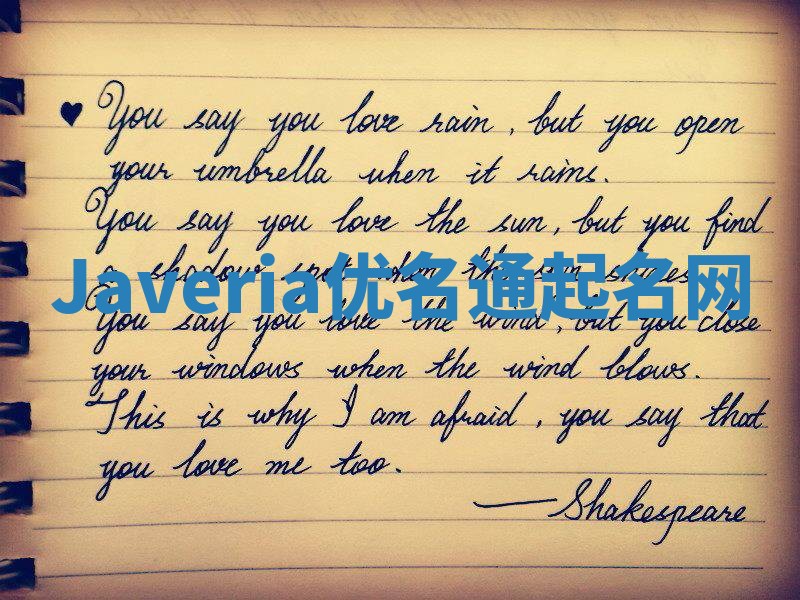 You say you love rain, but you open
your umbrella when it rains.
You say you love the sun, but you find
a shadow spot when the sun shines.
Javeria优名通起名网
You say you love the wind, but you close
your windows when the wind blows.
This is why I am afraid, you say that
you love me too.
— Shakespeare